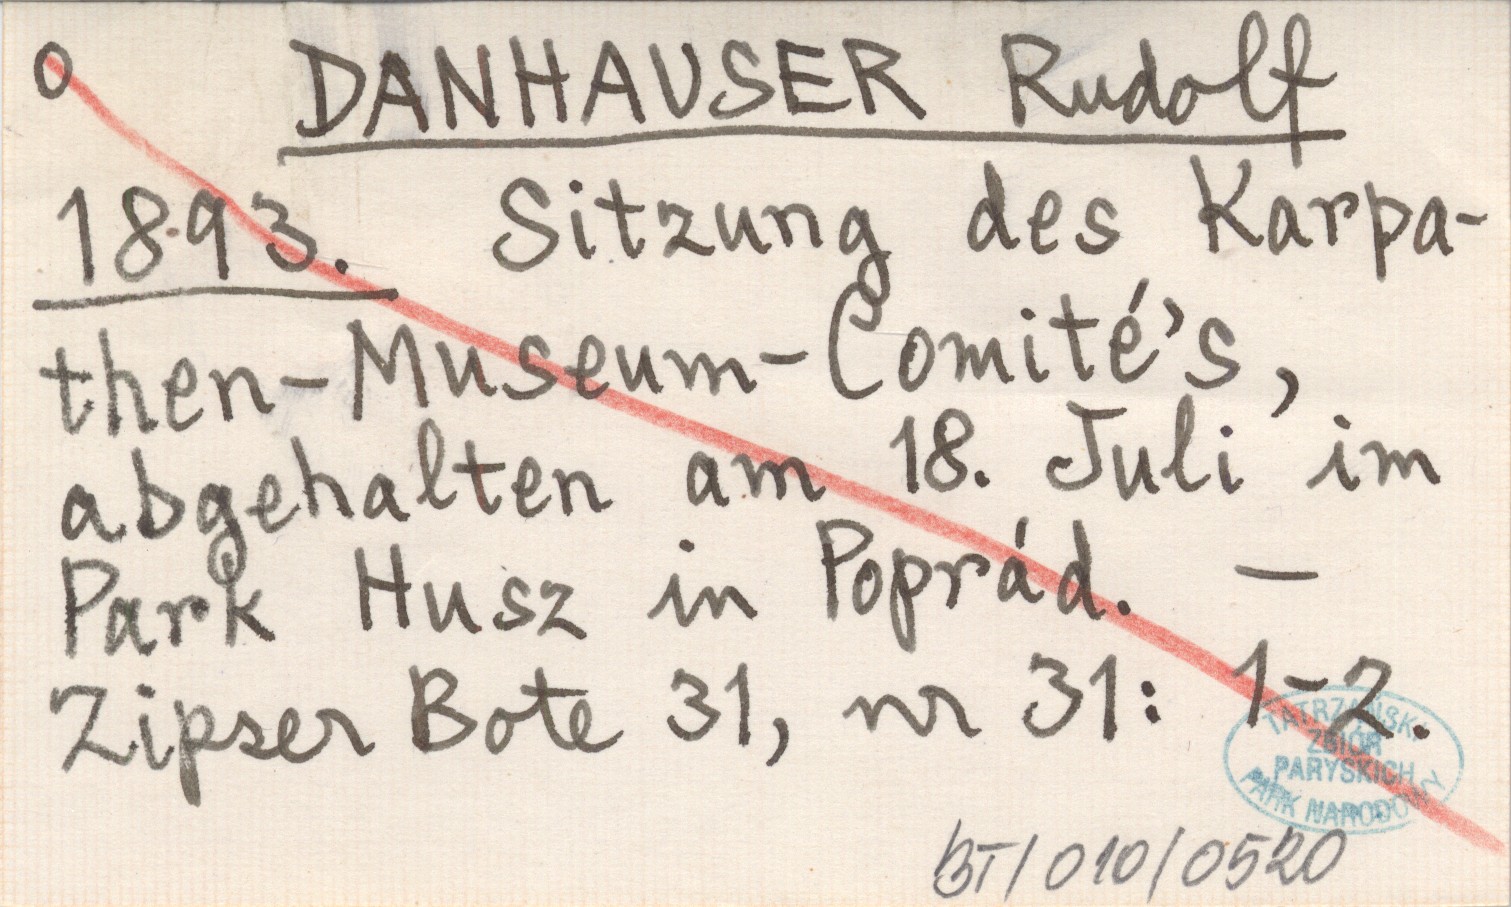 O DANHAUSER Rudolf
1893. Sitzung des Karpa-
then-Museum-Comité's,
abgehalten am 18. Juli im
Park Husz in Poprád. —
Zipser Bote 31, nr 31: 1-2.
TATRZAŃSKI
ZBIÓR
PARYSKICH
PARK NARODOWY
BT/010/0520